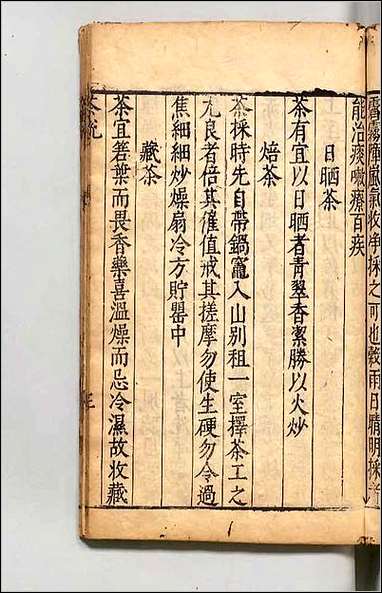 雷霧障嵐氣收净採之可也穀雨日晴明採
能治痰嗽療百疾
日晒茶
茶有宜以日晒者青翠香潔勝以火炒
焙茶
茶採時先自帶鍋竈入山別租一室擇茶工之
尤良者倍其雇值戒其搓摩勿使生硬勿令過
焦細細炒燥扇冷方貯罌中
藏茶
茶宜箬葉而畏香藥喜溫燥而忌冷濕故收藏
茶
三